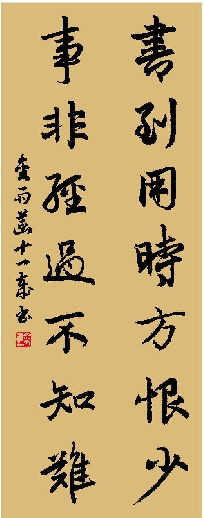 書到用時方恨少
事非經過不知難
十一歲書